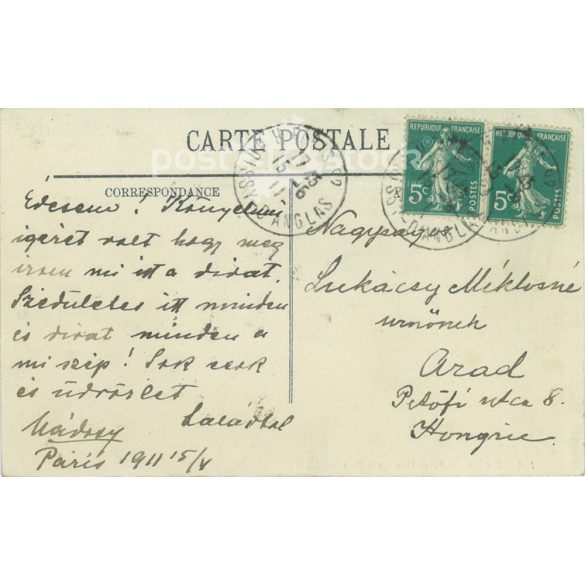 CARTE POSTALE
CORRESPONDANCE
Édesem! Könyelmű
igéret volt hogy meg
irom mi itt a divat.
Szédületes itt minden
és divat minden a
mi szép! Sok csok
és üdvözlet
Ladádtol
Mádosy
Páris 1911 15/V
Nagyságos
Lukácsy Miklósné
urnőnek
Arad
Petőfi utca 8.
Hongrie
REPUBLIQUE FRANÇAISE
5c
POSTES
REPUBLIQUE FRANÇAISE
5c
POSTES
BOISSY D'ANGLAS